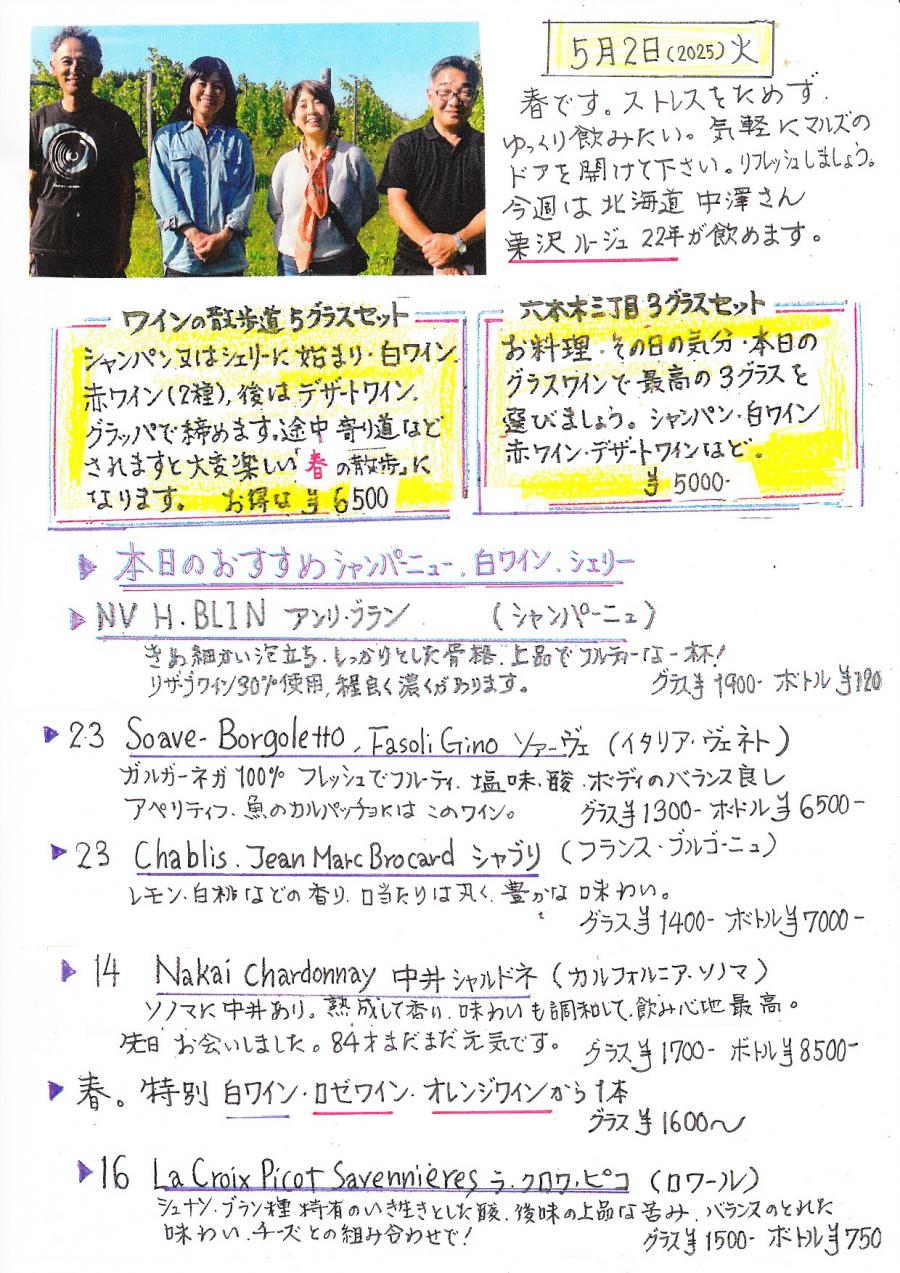 5月2日(2025)火
春です。ストレスをためず、
ゆっくり飲みたい。気軽にマルズの
ドアを開けて下さい。リフレッシュしましょう。
今週は北海道 中澤さん
栗沢ルージュ 22年が飲めます。
ワインの散歩道5グラスセット
シャンパン又はシェリーに始まり・白ワイン、
赤ワイン(2種)、後はデザートワイン、
グラッパで締めます。途中寄り道など
されますと大変楽しい「春の散歩」に
なります。 お得な ¥6500
六本木三丁目3グラスセット
お料理・その日の気分・本日の
グラスワインで最高の3グラスを
選びましょう。シャンパン・白ワイン
赤ワイン・デザートワインなど。
¥5000-
▶ 本日のおすすめシャンパーニュー、白ワイン、シェリー
▶ NV H.BLIN アンリ・ブラン (シャンパーニュ)
きめ細かい泡立ち、しっかりとした骨格、上品でフルーティーな一杯!
リザーブワイン30%使用、程良く濃くがあります。 グラス¥1900- ボトル¥120
▶ 23 Soave-Borgoletto, Fasoli Gino ソアーヴェ (イタリア・ヴェネト)
ガルガーネガ100% フレッシュでフルーティ、塩味、酸・ボディのバランス良し
アペリティフ、魚のカルパッチョにはこのワイン。 グラス¥1300- ボトル¥6500-
▶ 23 Chablis. Jean Marc Brocard シャブリ (フランス・ブルゴーニュ)
レモン・白桃などの香り、口当たりは丸く、豊かな味わい。
グラス¥1400- ボトル¥7000-
▶ 14 Nakai Chardonnay 中井シャルドネ (カルフォルニア・ソノマ)
ソノマに中井あり。熟成して香り、味わいも調和して、飲み心地最高。
先日お会いしました。84才まだまだ元気です。 グラス¥1700- ボトル¥8500-
▶ 春。特別 白ワイン・ロゼワイン・オレンジワインから1本
グラス¥1600〜
▶ 16 La Croix Picot Savennières ラ・クロワ・ピコ (ロワール)
シュナン・ブラン種特有のいき生きとした酸、後味の上品な苦み、バランスのとれた
味わい、チーズとの組み合わせで! グラス¥1500- ボトル¥750